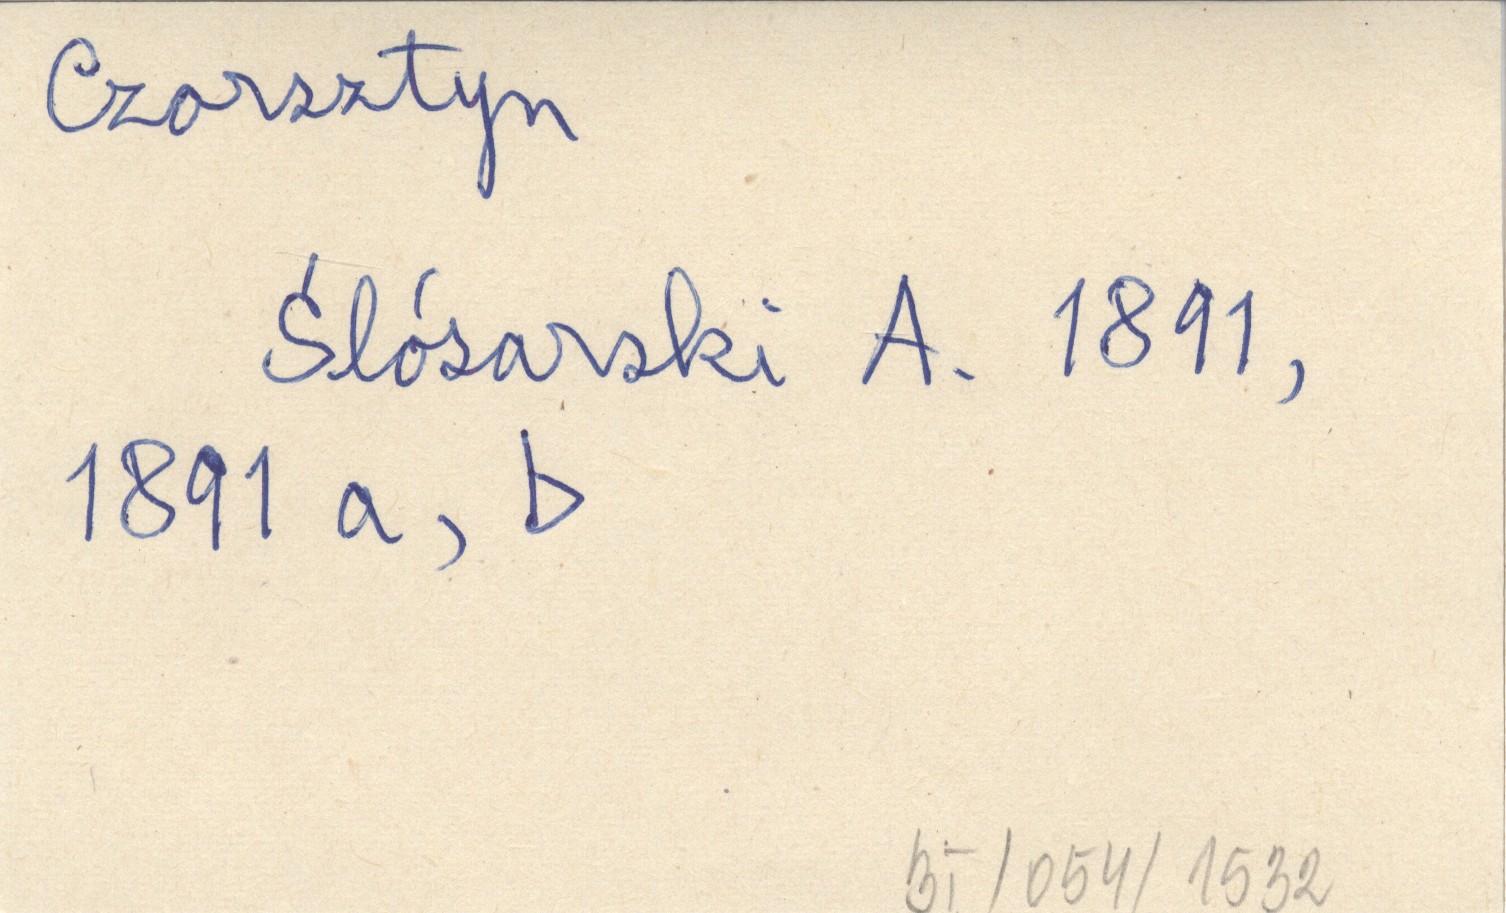 Czorsztyn
Ślósarski A. 1891,
1891 a, b
BI/054/1532